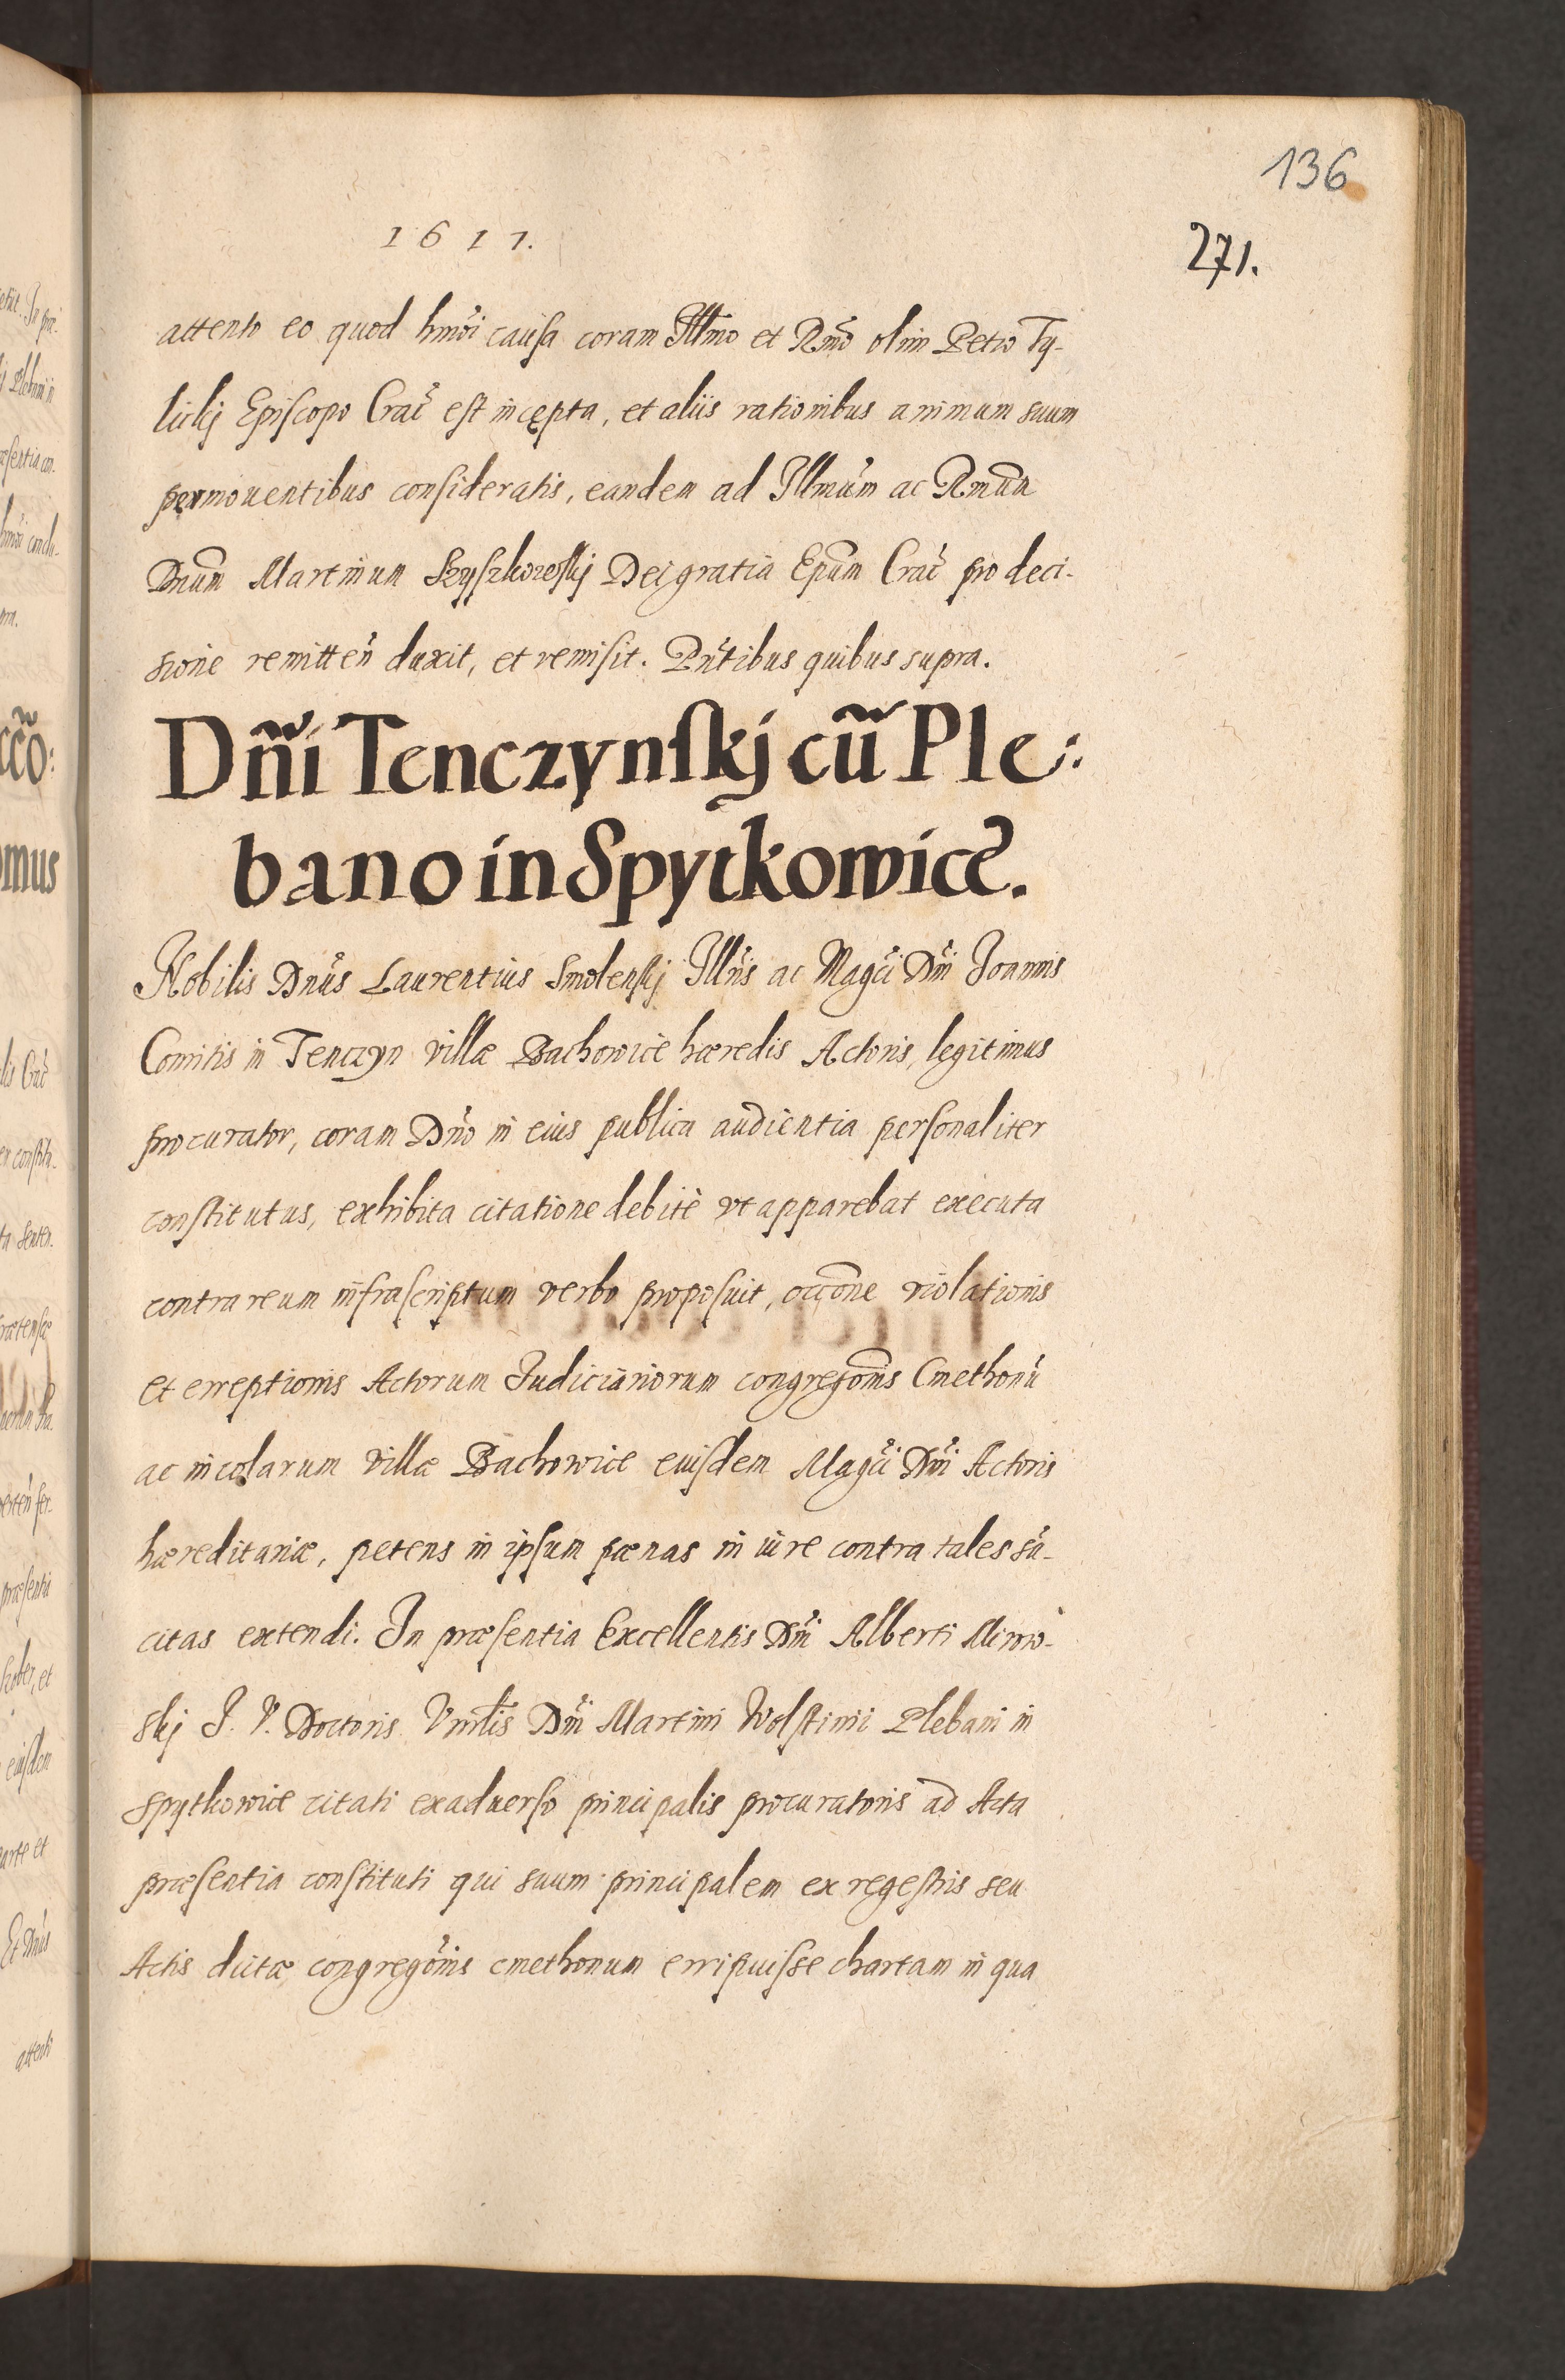 136
1617.
271.
attento eo quod hmõi causa coram Illmo et Rmõ olim Petro Ty-
lickj Episcopo Crac̃ est incępta, et aliis rationibus animum suum
permouentibus consideratis, eandem ad Illmũm ac Rmũm
Dnũm Martinum Szyszkowskj Dei gratia Epũm Crac̃ pro deci-
sione remitteñ duxit, et remisit. Pñtibus quibus supra.
Dñi Tenczynskj cũ Ple:
bano in Spytkowicẽ.
Nobilis Dnũs Laurentius Smolenskj Illr̃is ac Magc̃i Dñi Joannis
Comitis in Tenczyn villæ Bachowicẽ hæredis Actoris, legitimus
procurator, coram Dñõ in eius publica audientia personaliter
constitutus, exhibita citatione debitè vt apparebat executa
contra reum infrascriptum verbo proposuit, occõne violationis
et erreptionis Actorum Judiciariorum congregõnis Cmethonũ
ac incolarum villæ Bachowicẽ eiusdem Magc̃i Dñi Actoris
hæreditariæ, petens in ipsum pœnas in iure contra tales sã-
citas extendi. In præsentia Excellentis Dñi Alberti Miro-
skj J. V. Doctoris Vnr̃lis Dñi Martini Wolstinii Plebani in
Spytkowicẽ citati ex aduerso principalis procuratoris ad Acta
præsentia constituti qui suum principalem ex regestris seu
Actis dictæ congregõnis cmethonum erripuisse chartam in qua